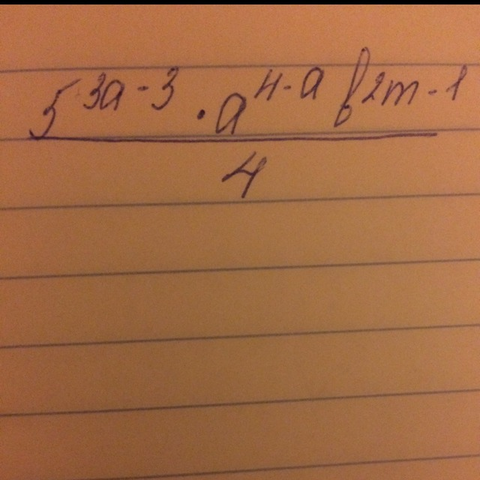 5^{3a-3} · a^{4-a} b^{2m-1}
4